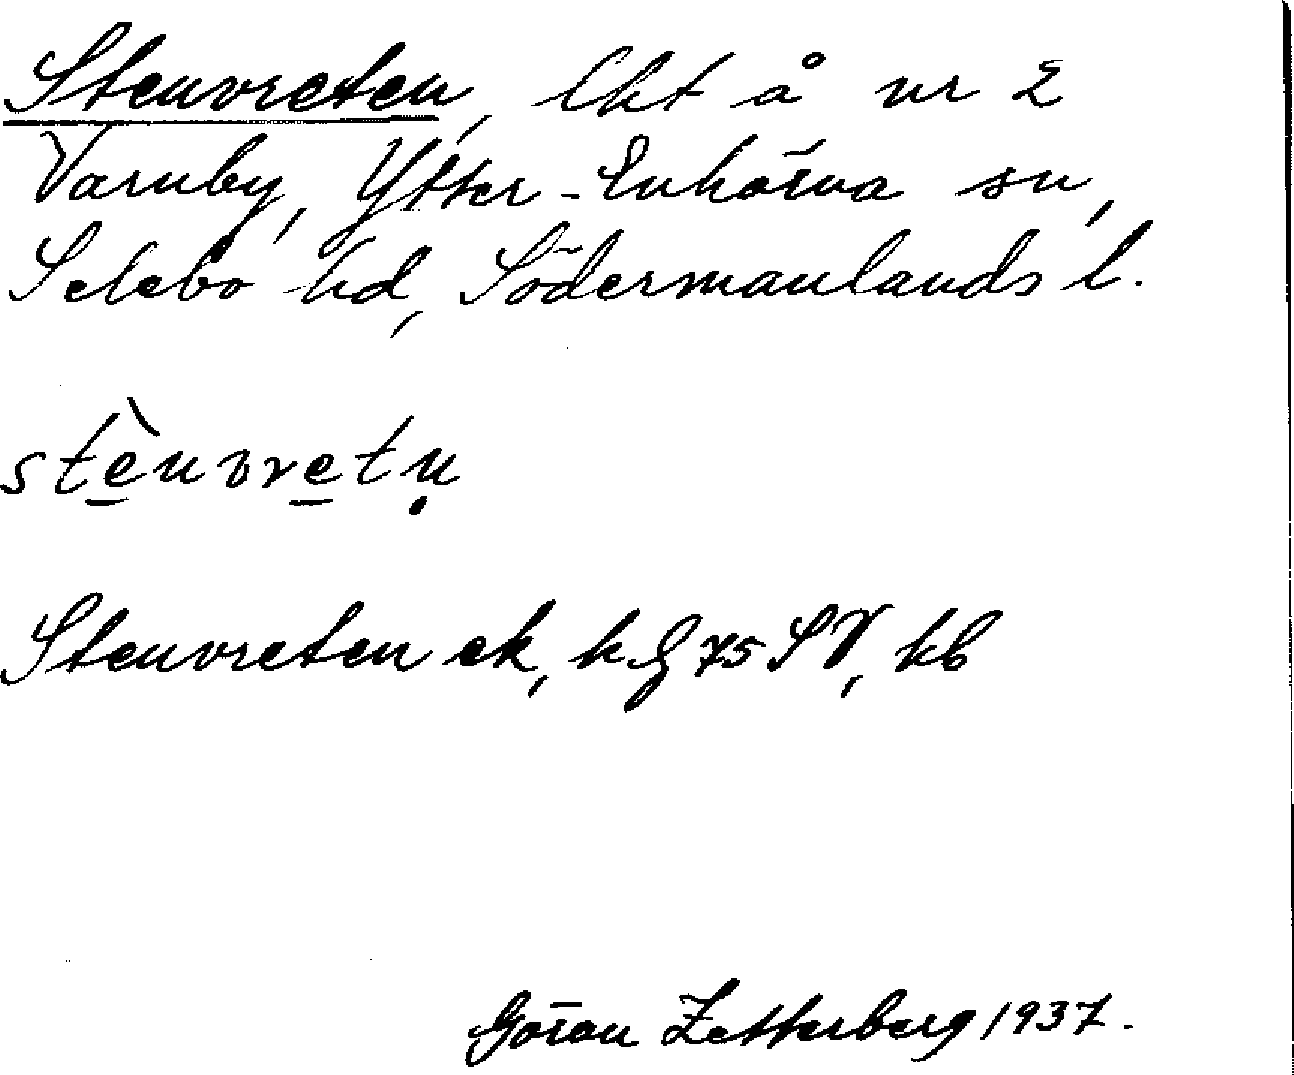 Stenvreten, lht å nr 2
Varnby, Ytter-Enhörna sn,
Selebo hd, Södermanlands l.
stè̱nvre̱tṇ
Stenvreten ek, h g 75 SV, kb
Göran Zetterberg 1937.